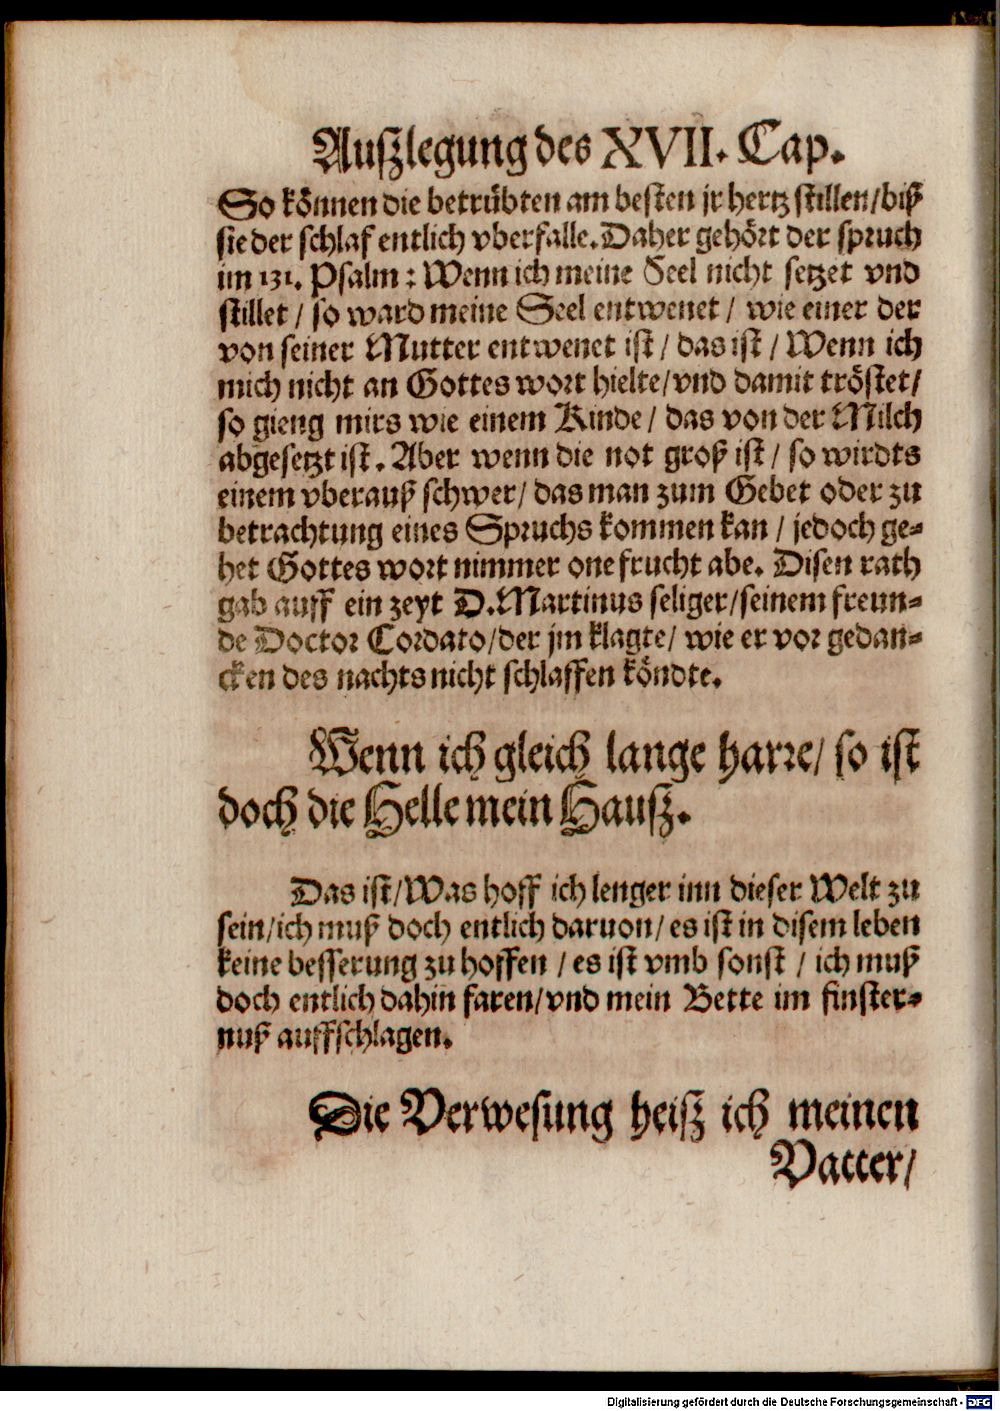 Auszlegung des XVII. Cap.
So können die betrübten am besten jr hertz stillen/biß
sie der schlaf entlich vberfalle. Daher gehört der spruch
im 131. Psalm: Wenn ich meine Seel nicht setzet vnd
stillet / so ward meine Seel entwenet / wie einer der
von seiner Mutter entwenet ist / das ist / Wenn ich
mich nicht an Gottes wort hielte/vnd damit tröstet/
so gieng mirs wie einem Kinde / das von der Milch
abgesetzt ist. Aber wenn die not groß ist / so wirdts
einem vberauß schwer/ das man zum Gebet oder zu
betrachtung eines Spruchs kommen kan / jedoch ge-
het Gottes wort nimmer one frucht abe. Disen rath
gab auff ein zeyt D. Martinus seliger/seinem freun-
de Doctor Cordato/der jm klagte/ wie er vor gedan-
cken des nachts nicht schlaffen köndte.
Wenn ich gleich lange harre/ so ist
doch die Helle mein Hausz.
Das ist/Was hoff ich lenger inn dieser Welt zu
sein/ich muß doch entlich daruon/ es ist in disem leben
keine besserung zu hoffen / es ist vmb sonst / ich muß
doch entlich dahin faren/vnd mein Bette im finster-
nuß auffschlagen.
Die Verwesung heisz ich meinen
Vatter/
Digitalisierung gefördert durch die Deutsche Forschungsgemeinschaft - DFG